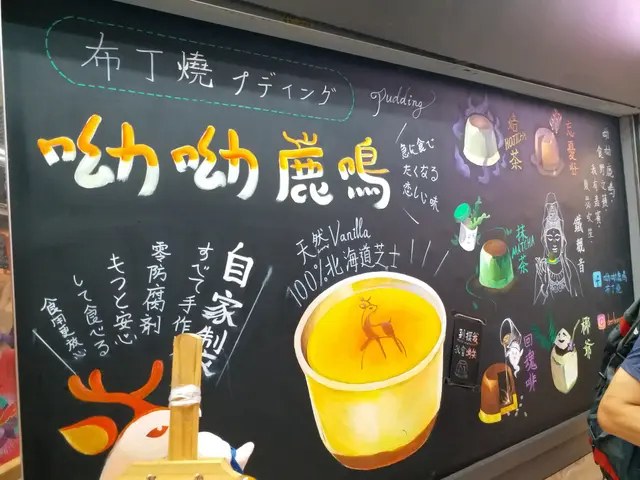 布丁燒 プディング
Pudding
呦呦鹿鳴
急に食べ
たくなる
恋しい味
天然Vanilla
100%北海道芝士
自家製
すべて手作
零防腐劑
もっと安心
して食べる
食用更放心
焙茶
HOJICHA
忘憂
抹茶
MATCHA
鐵觀音
呦呦鹿鳴
食野之蘋
我有嘉賓
鼓瑟吹笙
回魂啡
椰爺